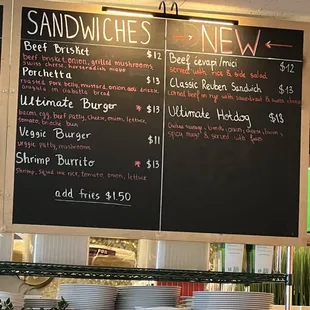 SANDWICHES
Beef Brisket $12
beef brisket, onion, grilled mushrooms
swiss cheese, horseradish mayo
Porchetta $13
roasted pork belly, mustard, onion
arugula in ciabatta bread
Ultimate Burger $13
bacon, egg, beef patty, cheese, onion, lettuce,
tomato, brioche bun
Veggie Burger $11
veggie patty, mushrooms
Shrimp Burrito $13
Shrimp, rice, tomato, onion, lettuce
add fries $1.50
NEW
Beef cevapi/mici $12
served with rice & side salad
Classic Reuben Sandwich $13
corned beef on rye with sauerkraut & swiss cheese
Ultimate Hotdog $13
onion, bacon,
spicy mayo & served with fries